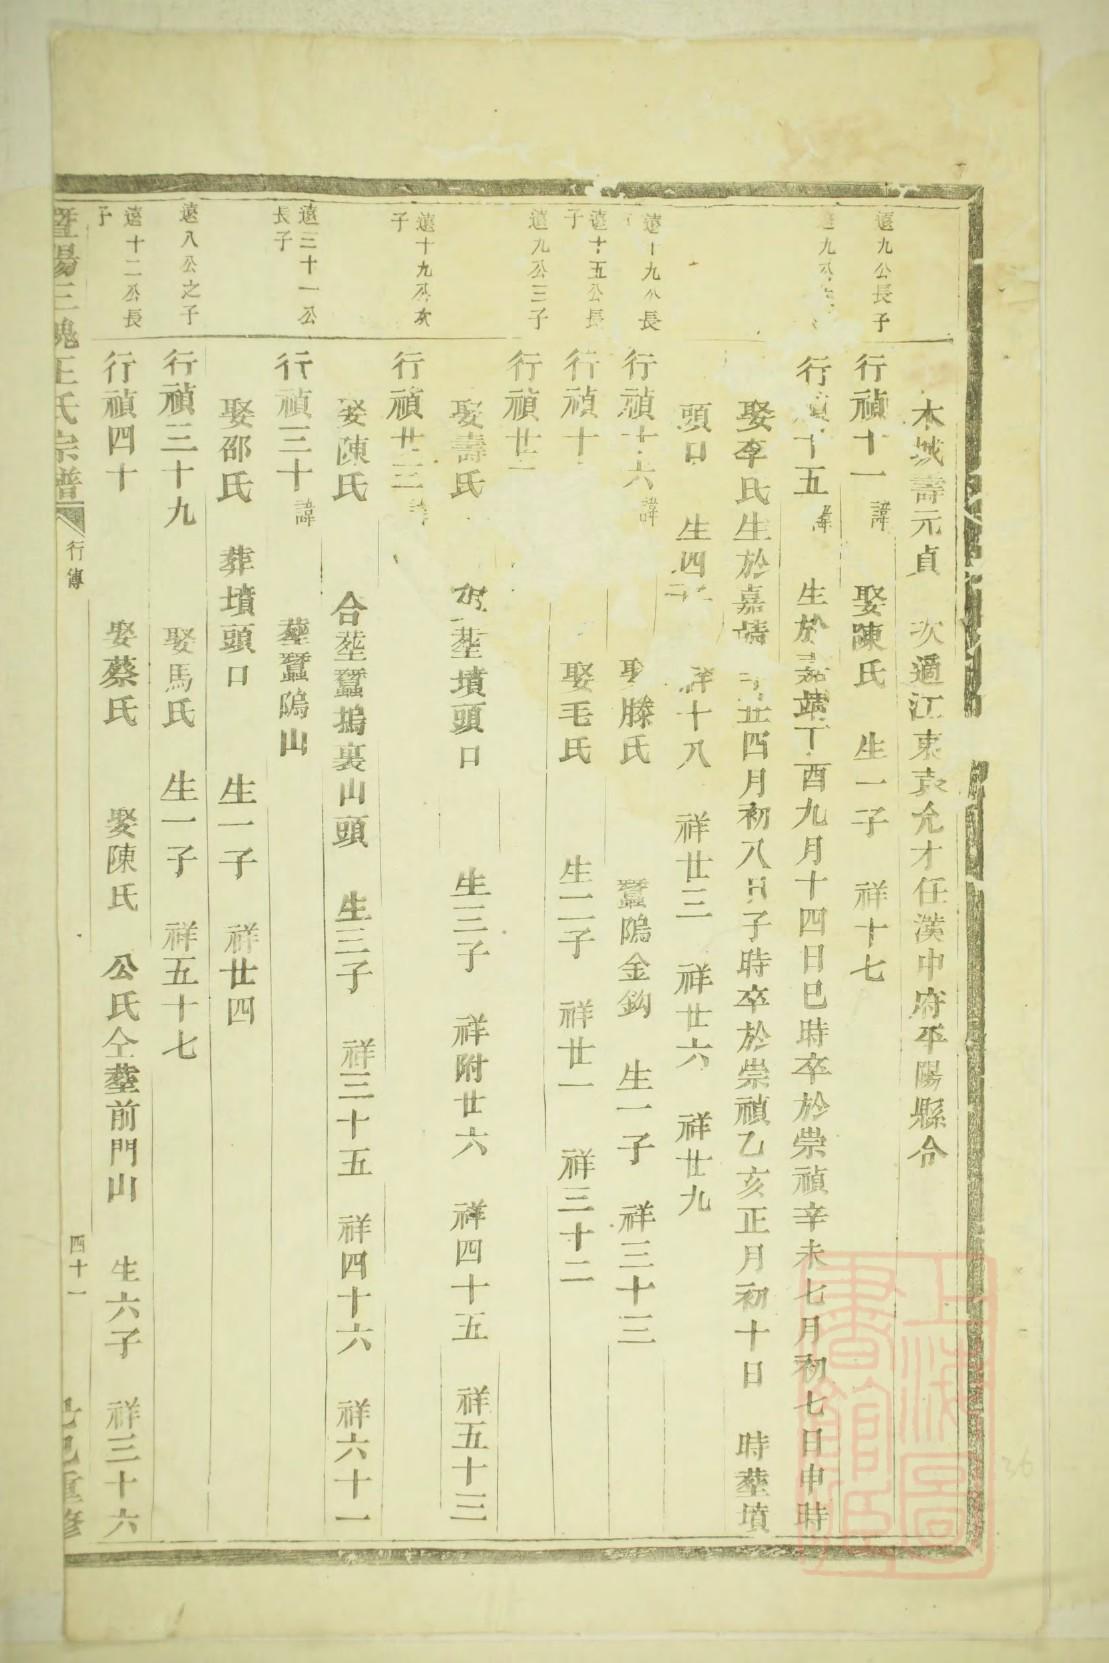 木城壽元貞 次適江東袁允才任漢中府平陽縣令
遠九公長子
行禎十一 諱 娶陳氏 生一子 祥十七
遠九公
行禎十五 諱 生於嘉靖丁酉九月十四日巳時卒於崇禎辛未七月初七日申時
娶李氏生於嘉靖 廿四月初八日子時卒於崇禎乙亥正月初十日 時塟墳
頭口 生四子 祥十八 祥廿三 祥廿六 祥廿九
遠十九公長
行禎十六 諱 娶滕氏 蠶隖金鈎 生一子 祥三十三
遠十五公長子
行禎十 娶毛氏 生二子 祥廿一 祥三十二
遠九公三子
行禎廿
娶壽氏 塟墳頭口 生三子 祥附廿六 祥四十五 祥五十三
遠十九公次子
行禎廿三 諱
娶陳氏 合塟蠶塢裏山頭 生三子 祥三十五 祥四十六 祥六十一
遠三十一公長子
行禎三十 諱 塟蠶隖山
娶邵氏 葬墳頭口 生一子 祥廿四
遠八公之子
行禎三十九 娶馬氏 生一子 祥五十七
遠十二公長子
行禎四十 娶蔡氏 娶陳氏 公氏仝塟前門山 生六子 祥三十六
暨陽三槐王氏宗譜 行傳 四十一 重修
上海圖書館藏